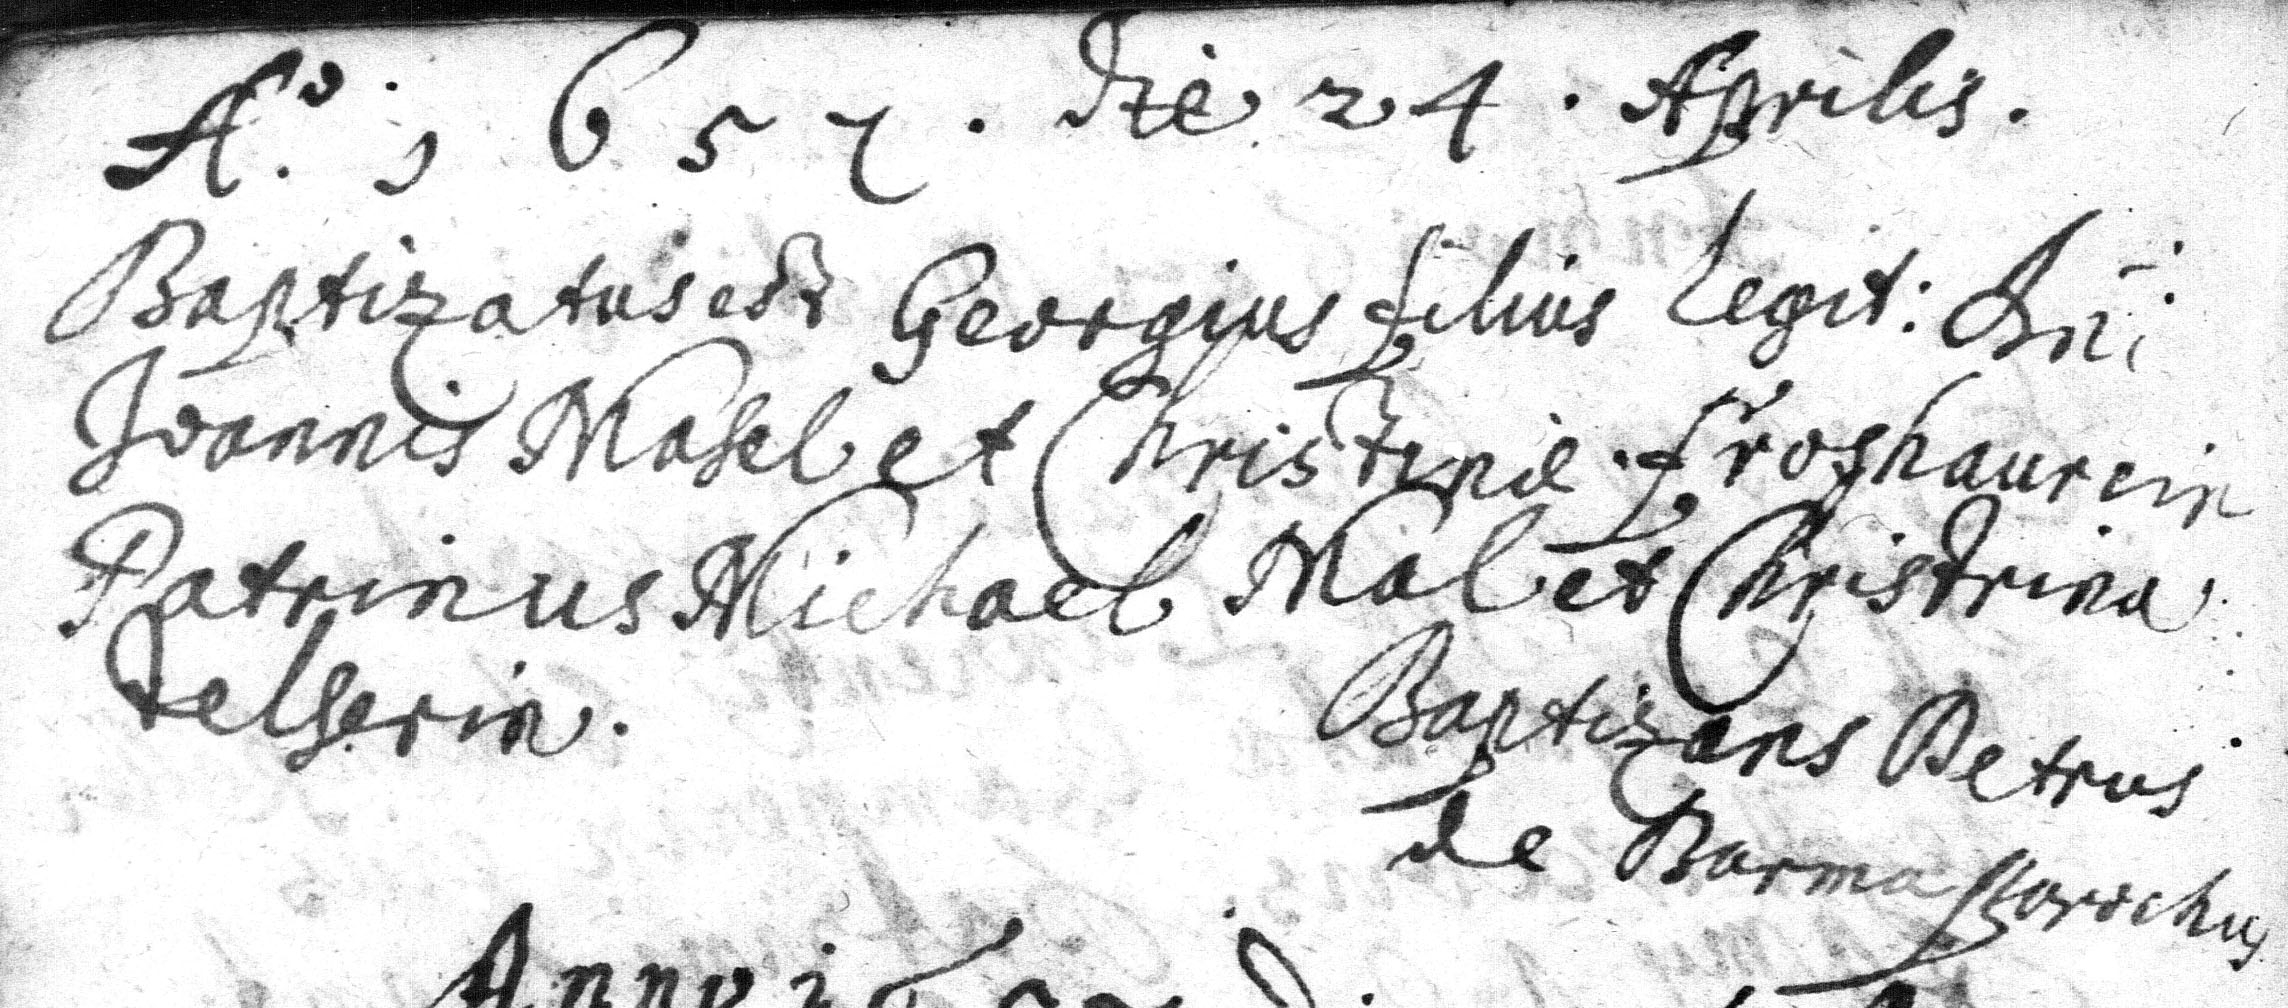 Ao. 1657. die 24. Aprilis.
Baptizatus est Georgius filius Legit: Dni:
Joannis Mosel et Christinæ froshaurin
Patrinus Michael Mal et Christina
Telserin.
Baptizans Petrus
de Barma parochus
Anno